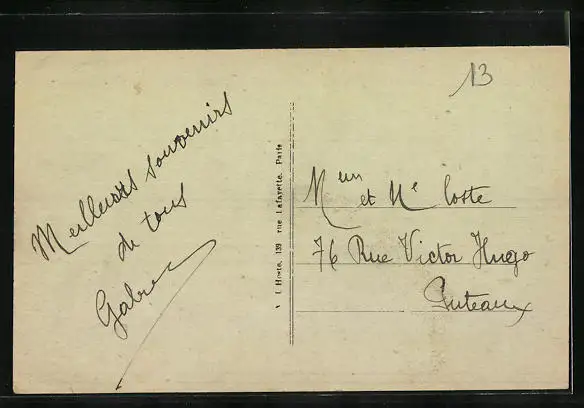 13
Meilleurs souvenirs
de tous
L. Hoste, 139 rue Lafayette, Paris
et Coste
76 Rue Victor Hugo
Puteaux